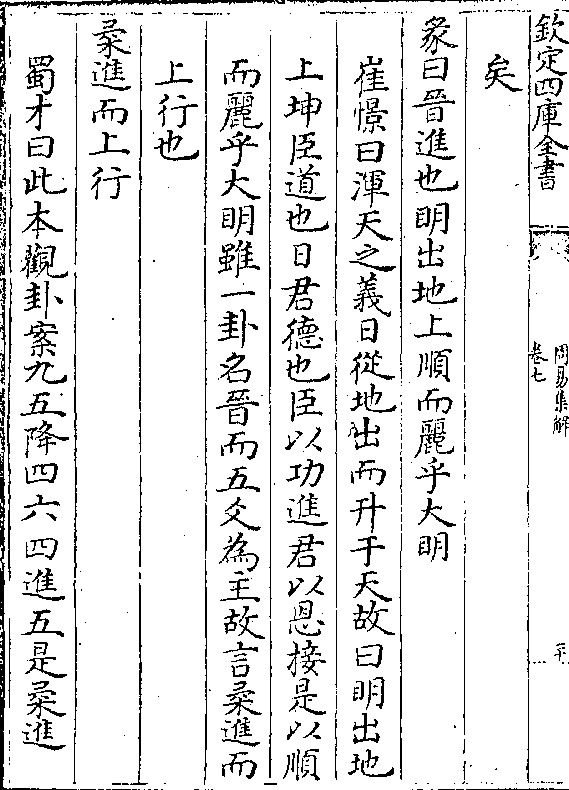 欽定四庫全書
周易集解
卷七
二十
矣
彖曰晉進也明出地上順而麗乎大明
崔憬曰渾天之義日從地出而升于天故曰明出地
上坤臣道也日君德也臣以功進君以恩接是以順
而麗乎大明雖一卦名晉而五爻為主故言柔進而
上行也
柔進而上行
蜀才曰此本觀卦案九五降四六四進五是柔進